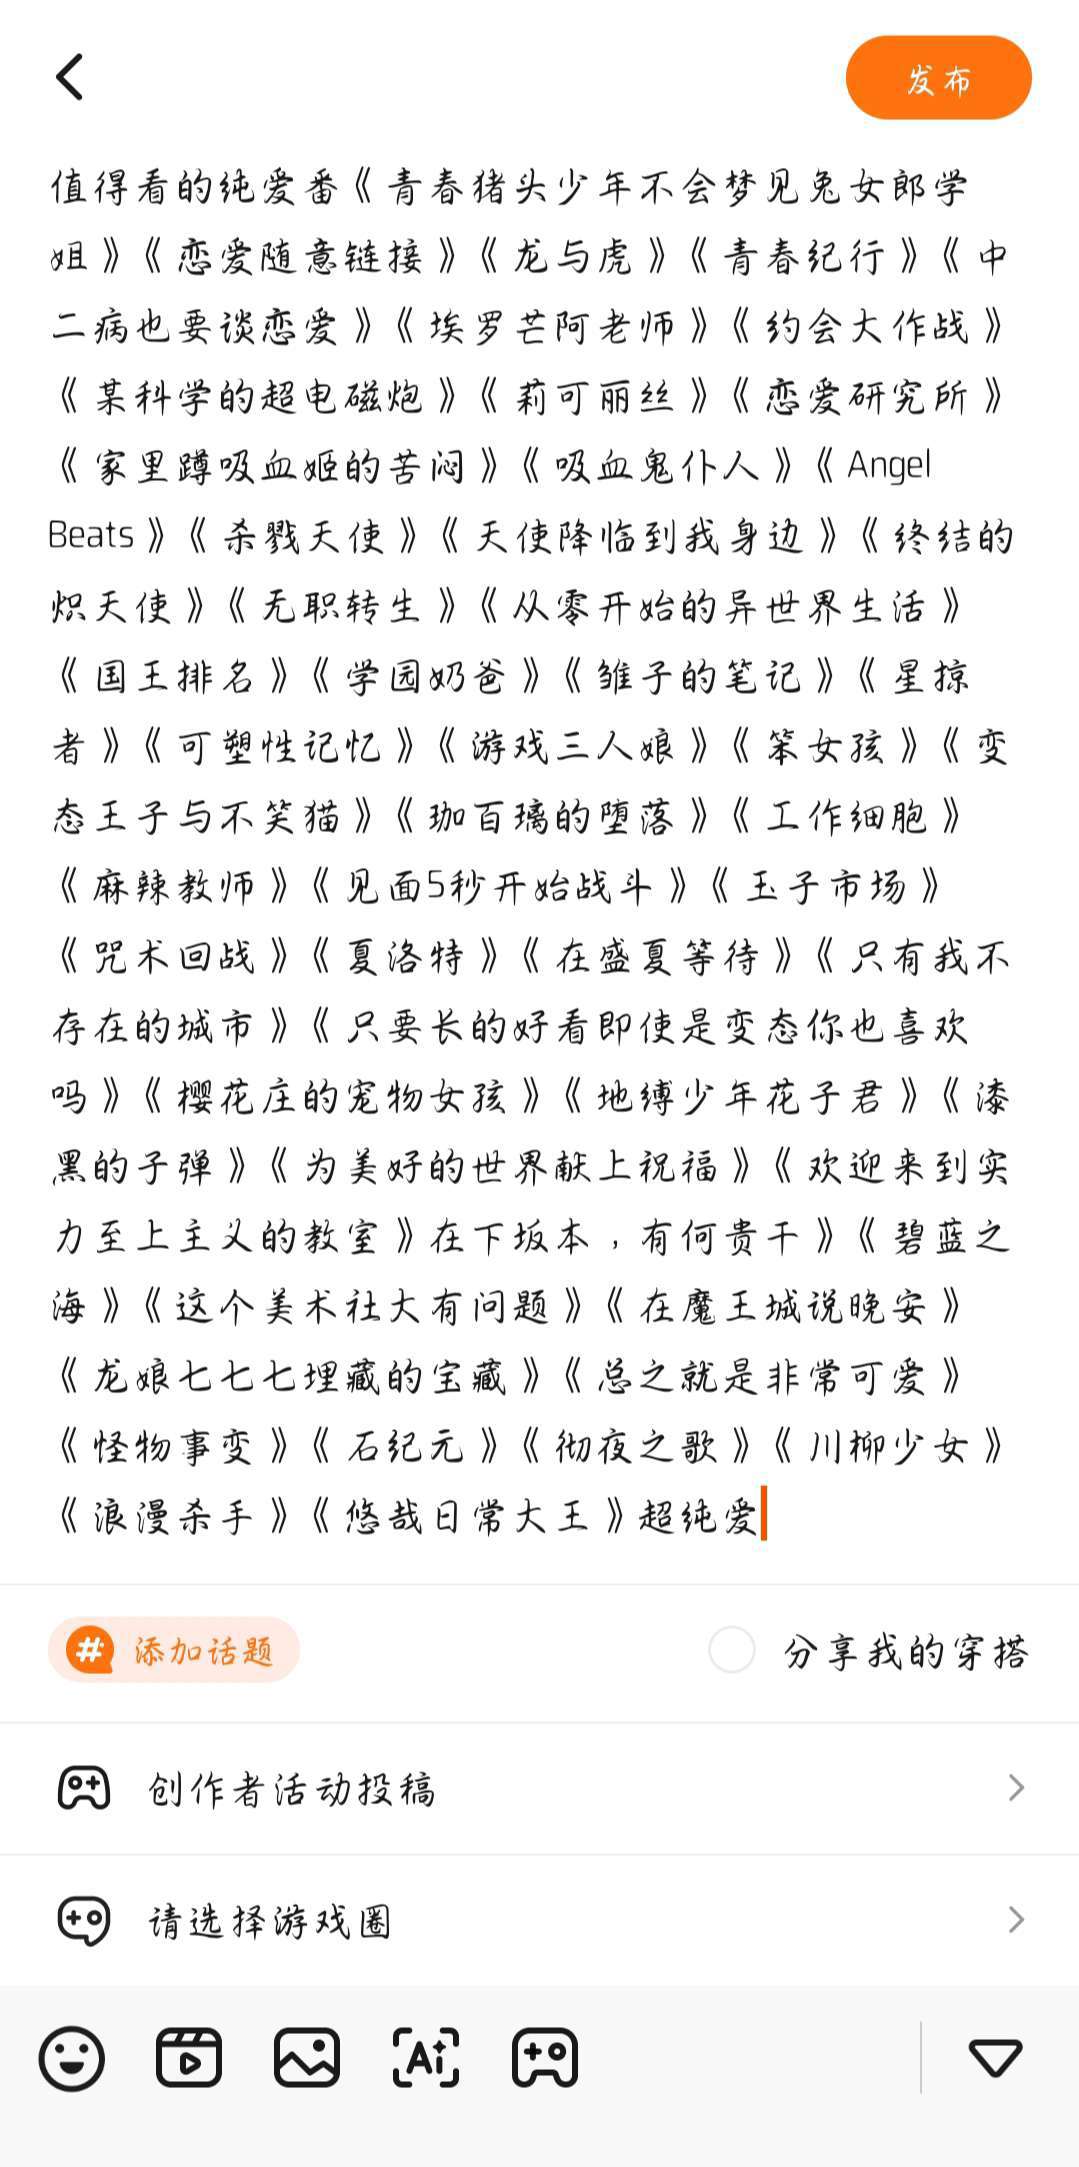 发布
值得看的纯爱番《青春猪头少年不会梦见兔女郎学
姐》《恋爱随意链接》《龙与虎》《青春纪行》《中
二病也要谈恋爱》《埃罗芒阿老师》《约会大作战》
《某科学的超电磁炮》《莉可丽丝》《恋爱研究所》
《家里蹲吸血姬的苦闷》《吸血鬼仆人》《Angel
Beats》《杀戮天使》《天使降临到我身边》《终结的
炽天使》《无职转生》《从零开始的异世界生活》
《国王排名》《学园奶爸》《雏子的笔记》《星掠
者》《可塑性记忆》《游戏三人娘》《笨女孩》《变
态王子与不笑猫》《珈百璃的堕落》《工作细胞》
《麻辣教师》《见面5秒开始战斗》《玉子市场》
《咒术回战》《夏洛特》《在盛夏等待》《只有我不
存在的城市》《只要长的好看即使是变态你也喜欢
吗》《樱花庄的宠物女孩》《地缚少年花子君》《漆
黑的子弹》《为美好的世界献上祝福》《欢迎来到实
力至上主义的教室》在下坂本，有何贵干》《碧蓝之
海》《这个美术社大有问题》《在魔王城说晚安》
《龙娘七七七埋藏的宝藏》《总之就是非常可爱》
《怪物事变》《石纪元》《彻夜之歌》《川柳少女》
《浪漫杀手》《悠哉日常大王》超纯爱
# 添加话题
分享我的穿搭
创作者活动投稿
请选择游戏圈
Ai